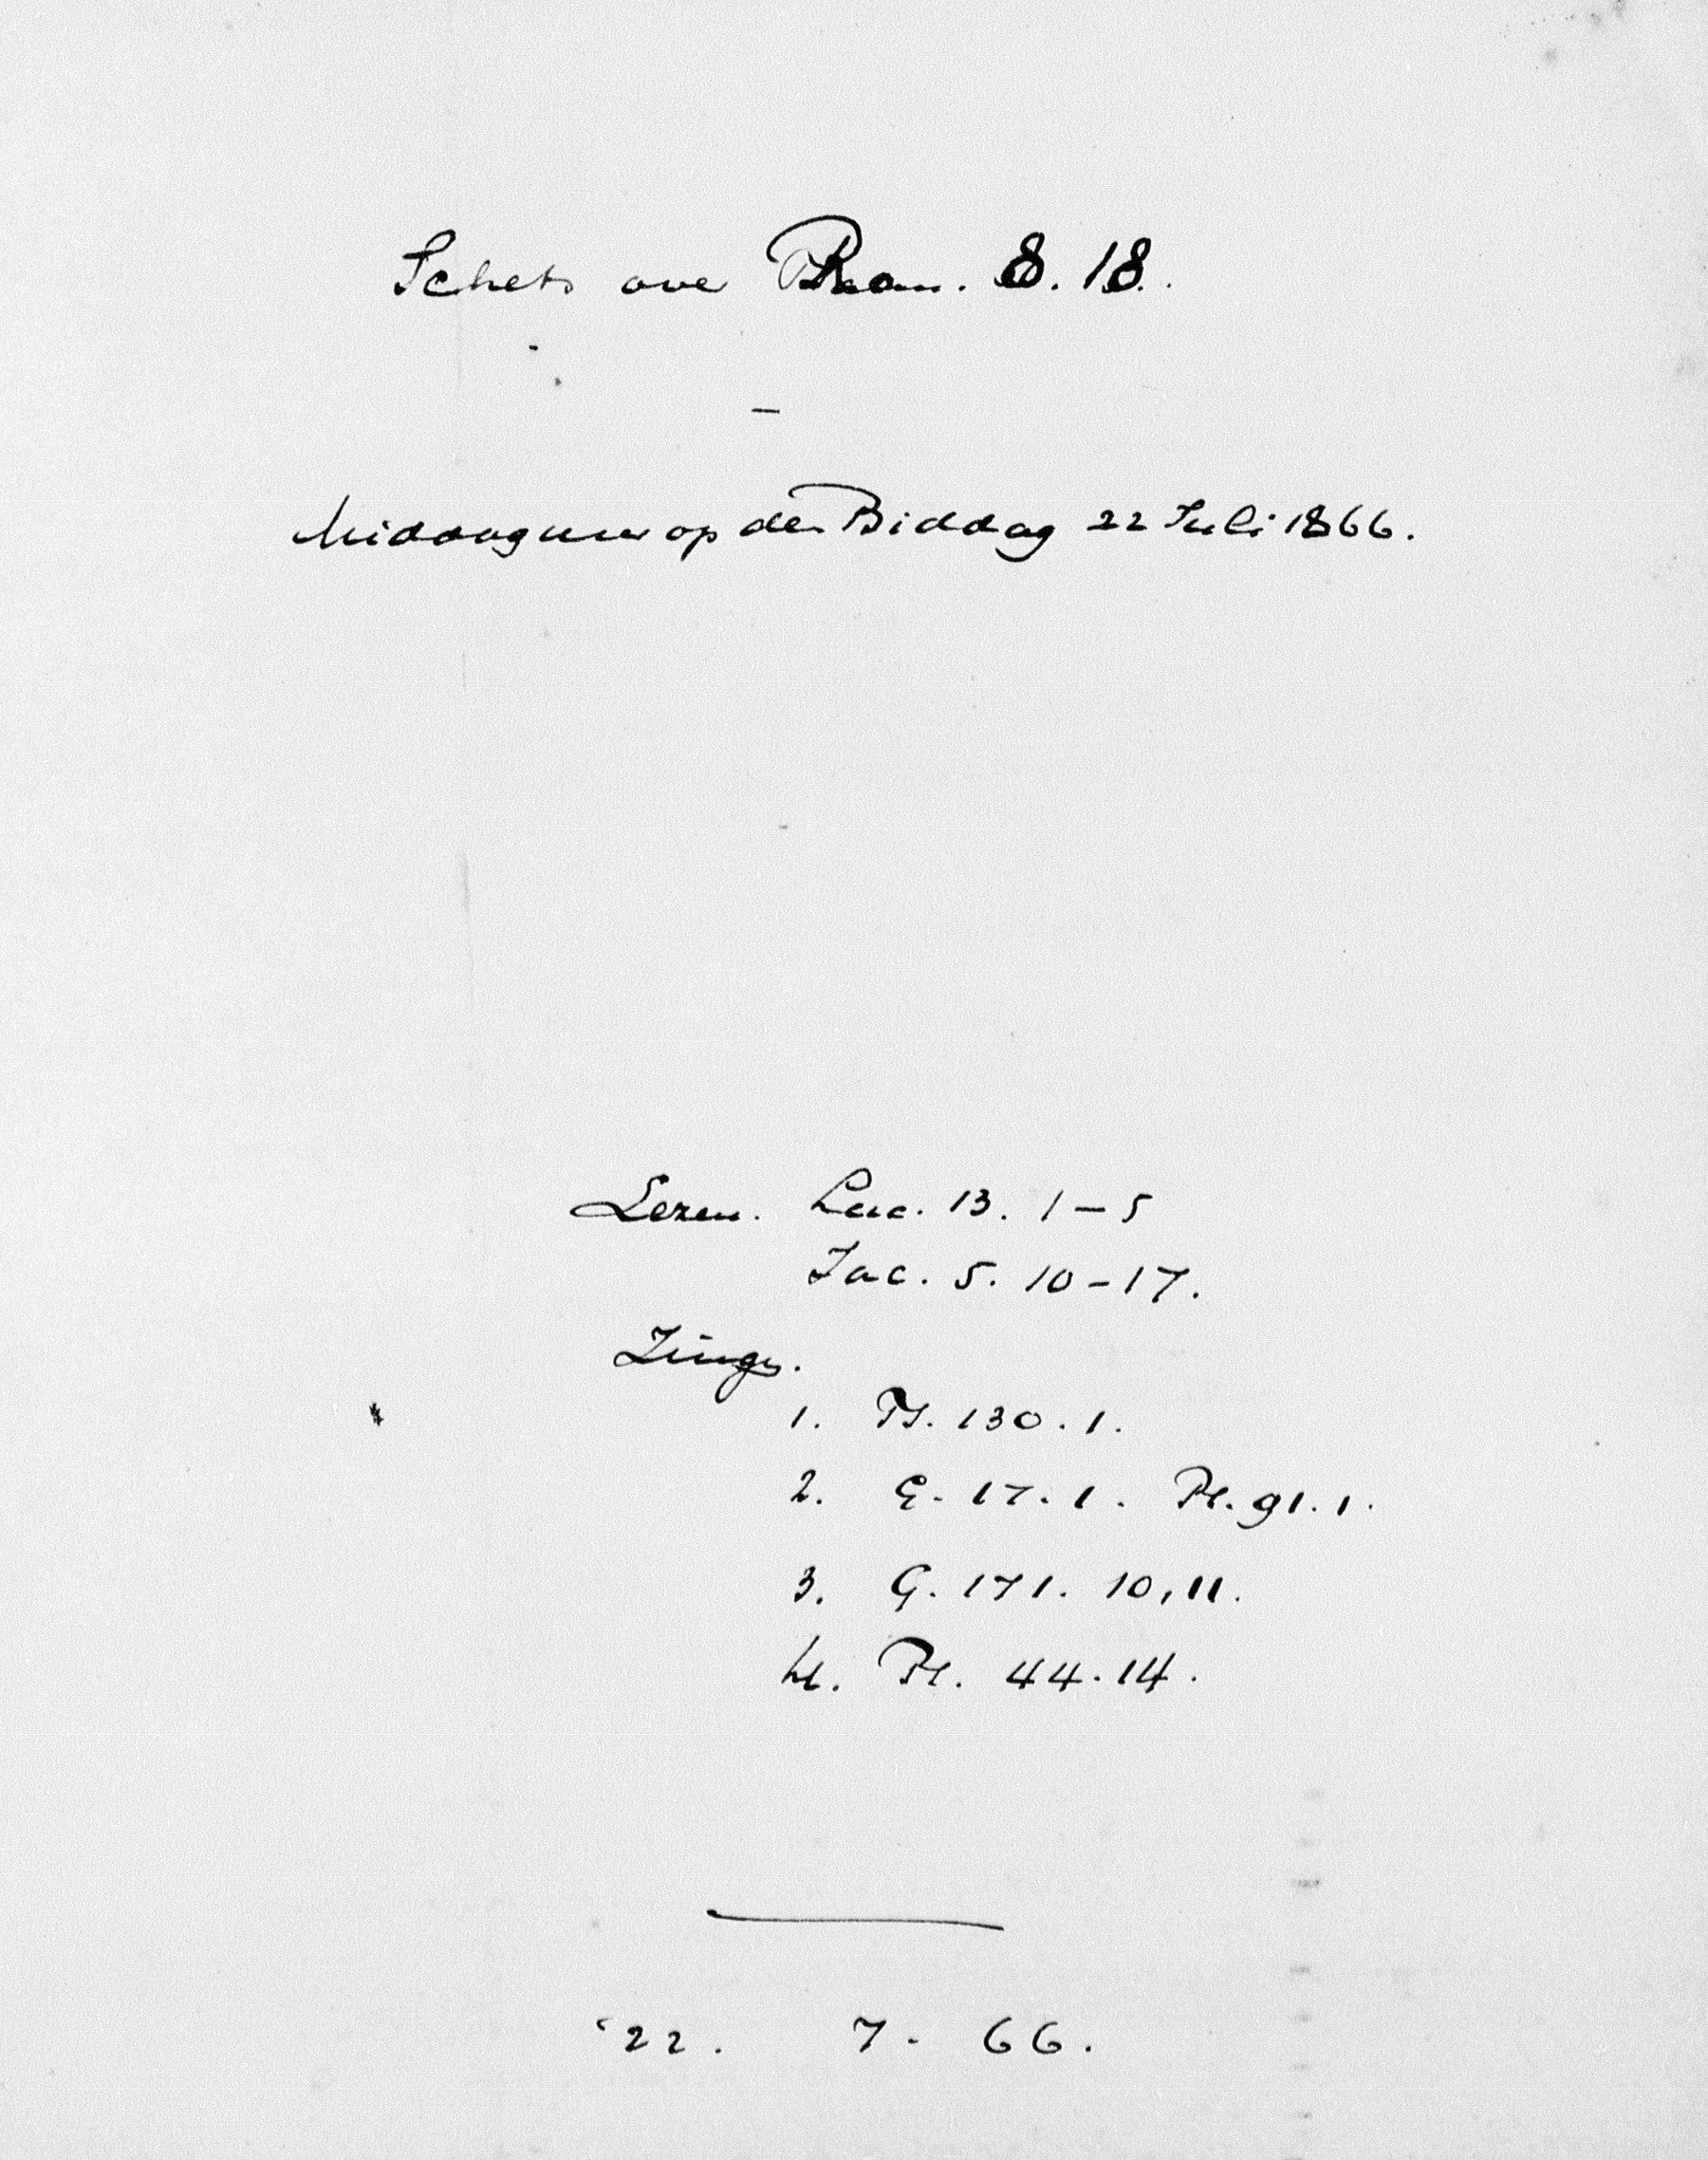 Schets over Rom. 8. 18.
—
Middaguur op den Biddag 22 Juli 1866.
Lezen. Luc. 13. 1–5
Jac. 5. 10–17.
Zingen.
1. Ps. 130. 1.
2. G. 17. 1. Ps. 91. 1.
3. G. 171. 10, 11.
4. Ps. 44. 14.
22. 7. 66.